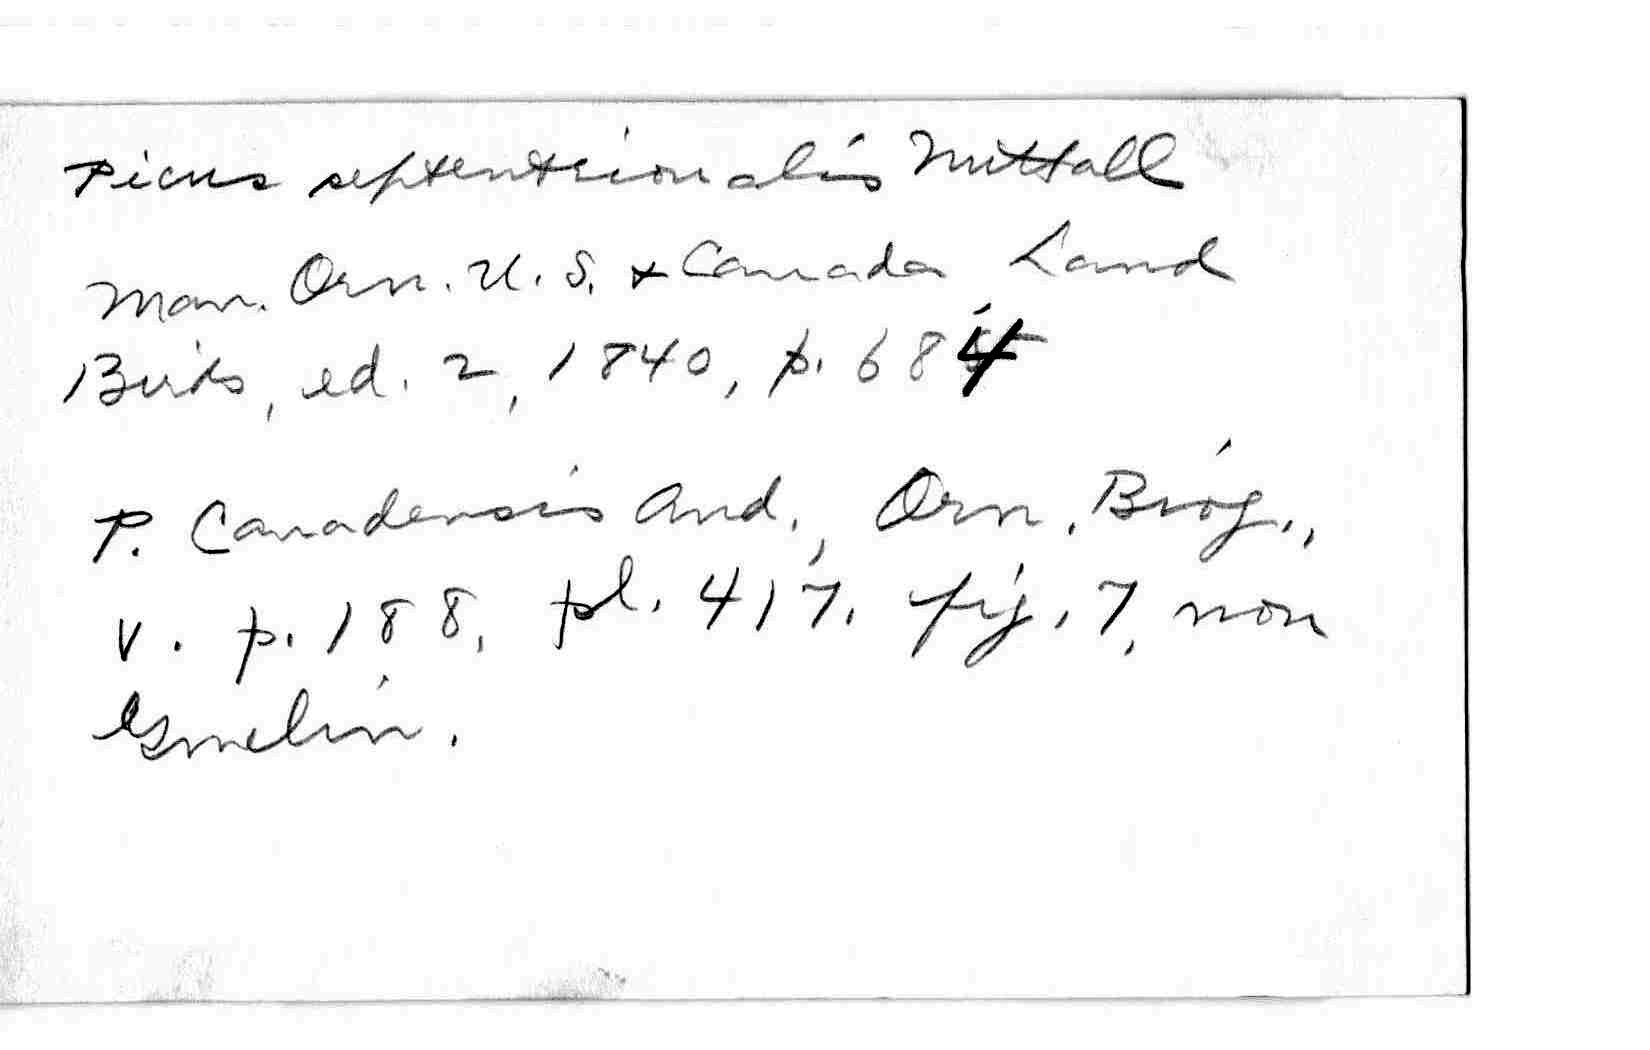 Picus septentrionalis Nuttall
Man. Orn. U. S. & Canada Land
Birds, ed. 2, 1840, p. 684
P. Canadensis Aud., Orn. Biog.,
v. p. 188, pl. 417, fig. 7, non
Gmelin.